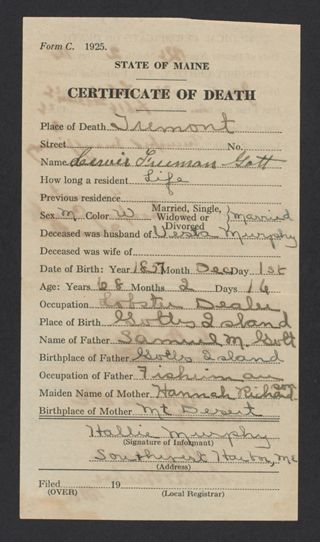 Form C. 1925.
STATE OF MAINE
CERTIFICATE OF DEATH
Place of Death Tremont
Street No.
Name Freeman Gott
How long a resident Life
Previous residence
Sex M Color W Married, Single, Widowed or Divorced } Married
Deceased was husband of Vesta Murphy
Deceased was wife of
Date of Birth: Year 1857 Month Dec Day 1st
Age: Years 68 Months 2 Days 16
Occupation Lobster Dealer
Place of Birth Gotts Island
Name of Father Samuel M. Gott
Birthplace of Father Gotts Island
Occupation of Father Fisherman
Maiden Name of Mother Hannah Richardson
Birthplace of Mother Mt Desert
Hallie Murphy
(Signature of Informant)
Southwest Harbor, Me
(Address)
Filed 19
(OVER) (Local Registrar)